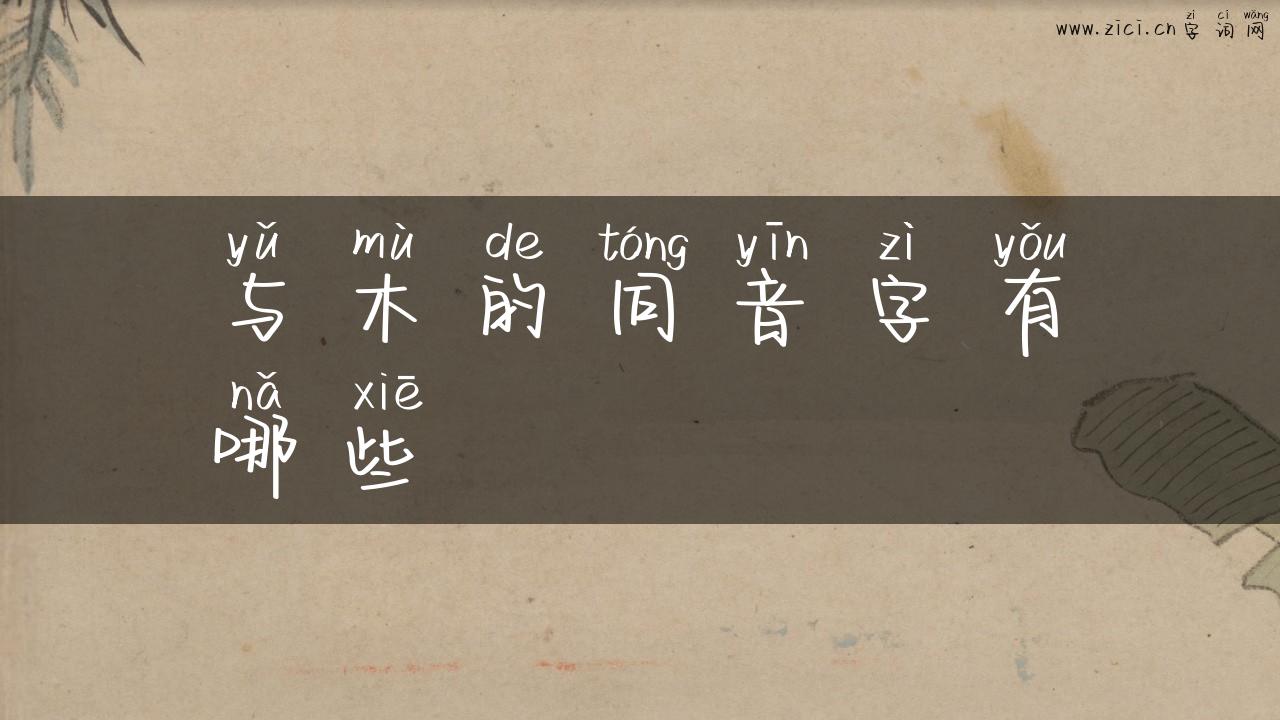 zì cí wǎng
www.zici.cn 字 词 网
yǔ mù de tóng yīn zì yǒu
与 木 的 同 音 字 有
nǎ xiē
哪 些